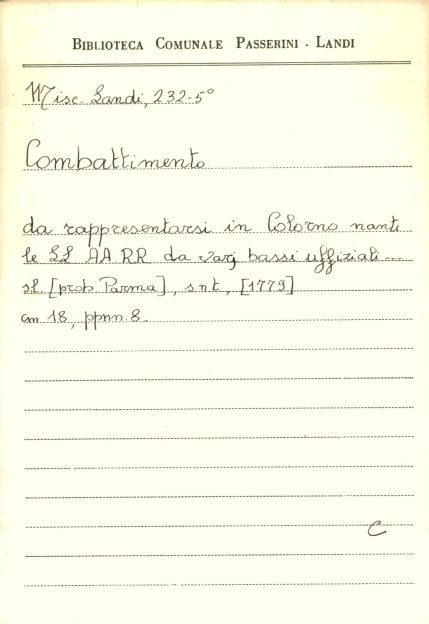 BIBLIOTECA COMUNALE PASSERINI - LANDI
Misc. Landi, 232-5°
Combattimento
da rappresentarsi in Colorno nanti
le LL AA. RR da varj bassi uffiziali ---
sl [prob Parma], snt, [1779]
cm 18, ppnn 8.
C